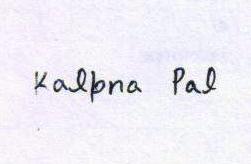 Kalpna Pal